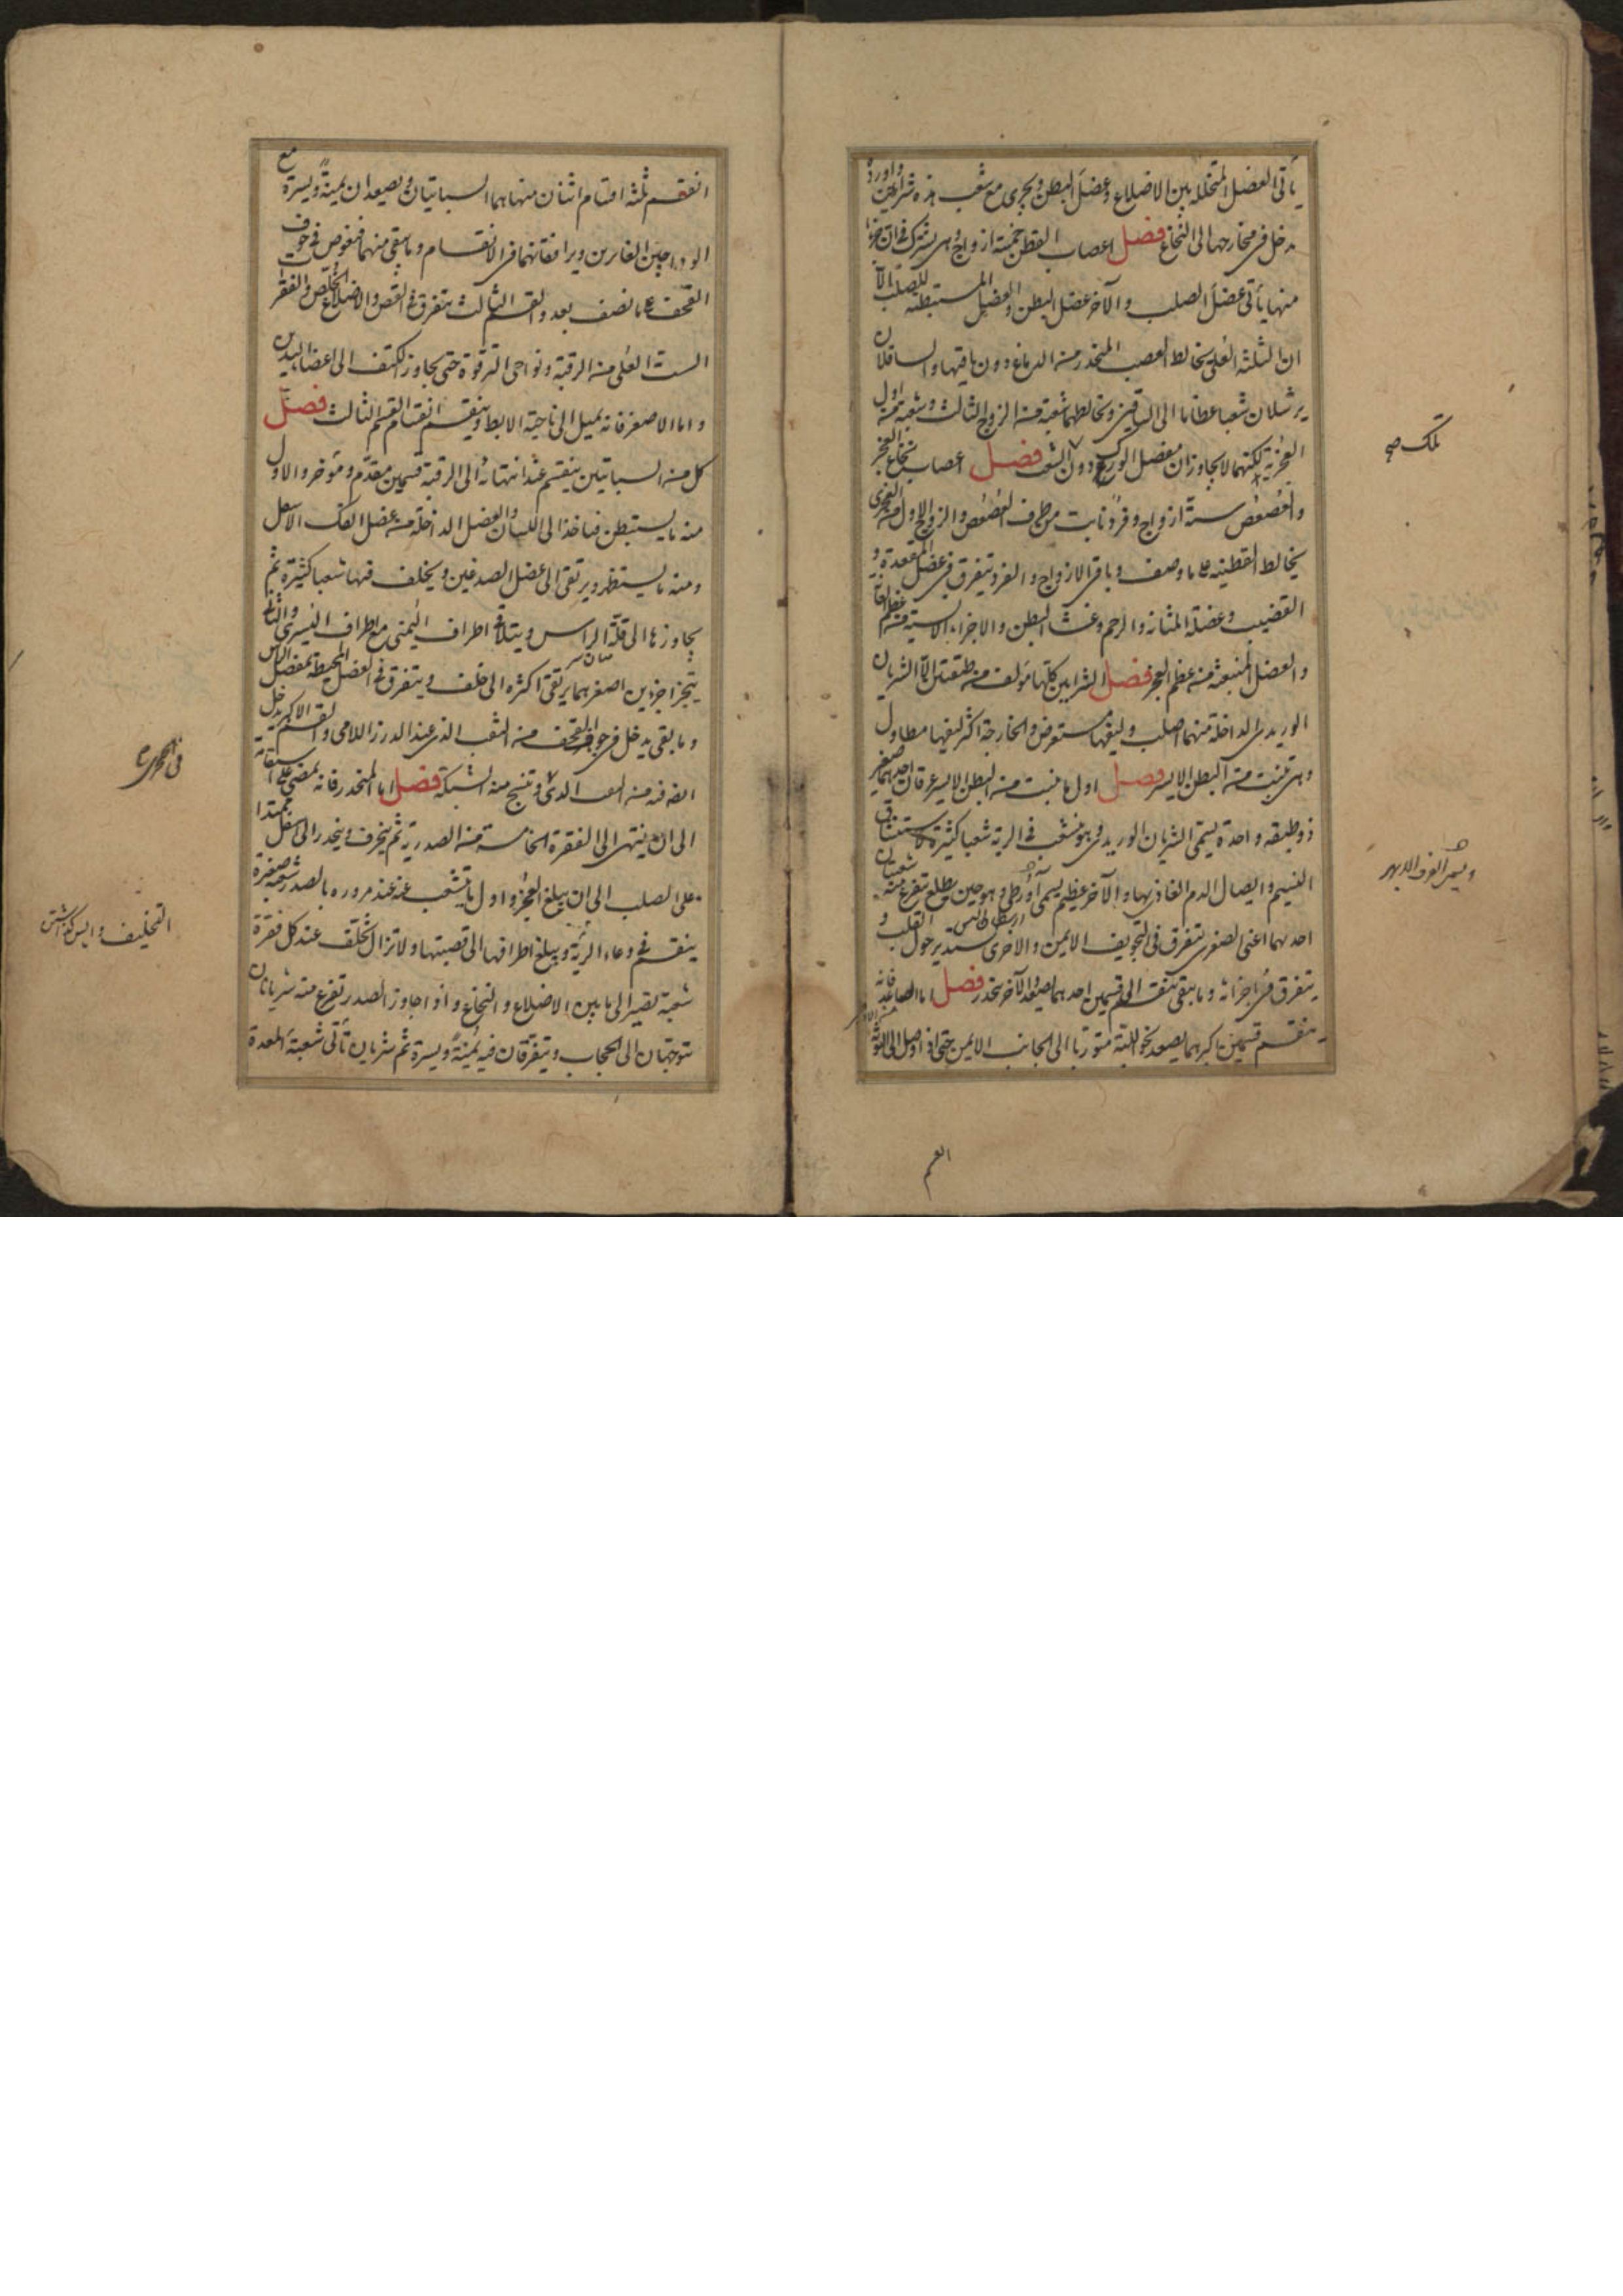 يأتى العضل المتخللة بين الاضلاع وعضل البطن ويجرى مع شعب هذه شرايين واوردة
تدخل فى مخارجها الى النخاع فصل اعصاب القطن خمسة ازواج وهى يشترك فى ان جزءا
منها يأتى عضل الصلب والآخر عضل البطن والعضل المستبطنة للصلب الا
ان الثلثة العلى يخالط العصب المنحدر من الدماغ دون باقيها والسافلان
يرسلان شعبا عظاما الى الساقين وتخالطهما شعبة من الزوج الثالث وشعبة من اول
العجزية لكنهما لا يجاوزان مفصل الورك فصل اعصاب نخاع العجز
والعصعص ستة ازواج وفرد نابت من طرف العصعص والزوج الاول من العجزى
يخالط القطنية على ما وصف وباقى الازواج والفرد يتفرق فى عضل المقعدة و
القضيب وعضلة المثانة والرحم وغشاء البطن والاجزاء الانسية من عظم العانة
والعضل المنبعثة من عظم العجز فصل الشرايين كلها مؤلفة من طبقتين الا الشريان
الوريدى الداخلة منهما اصلب وليفها مستعرض والخارجة اكثر ليفها مطاول
وهى تنبت من البطن الايسر فصل اول ما ينبت من البطن الايسر عرقان احدهما صغير
ذو طبقة واحدة يسمى الشريان الوريدى وهو يتشعب فى الرية شعبا كثيرة لاستنشاق
النسيم وايصال الدم الغاذى بها والآخر عظيم يسمى آورطى وهو حين يطلع تفرع منه شعبتان
ارسطاطاليس
احدهما اعنى الصغرى تتفرق فى التجويف الايمن والاخرى تستدير حول القلب و
يتفرق فى اجزائه وما يبقى ينقسم الى قسمين احدهما يصعد والآخر ينحدر فصل اما الصاعد فانه
ينقسم قسمين اكبرهما يصعد نحو اللبة متوربا الى الجانب الايمن حتى اذا وصل الى
تلك صح
ويسمى العرق الابهر
انقسم ثلثة اقسام اثنان منها هما السباتيان ويصعدان يمنة ويسرة مع
الوداجين الغائرين ويرافقانهما فى الانقسام وما يبقى منهما فيغوص فى جوف
القحف على ما نصف بعد والقسم الثالث يتفرق فى القص والاضلاع الخلص والفقر
الست العلى من الرقبة ونواحى الترقوة حتى يجاوز الكتف الى اعضا اليدين
واما الاصغر فانه يميل الى ناحية الابط وينقسم انقسام القسم الثالث فصل
كل من السباتيين ينقسم عند انتهائه الى الرقبة قسمين مقدم ومؤخر والاول
منه ما يستبطن فياخذ الى اللسان والعضل الداخلة من عضل الفك الاسفل
ومنه ما يستظهر ويرتقى الى عضل الصدغين ويخلف فيها شعبا كثيرة ثم
يجاوزها الى قلة الراس ويتلاقى اطراف اليمنى مع اطراف اليسرى والثانى
يتجزا جزءين اصغرهما يرتقى اكثره الى خلف ويتفرق فى العضل المحيطة بمفصل الراس
وما بقى يدخل فى جوف القحف من الثقب الذى عند الدرز اللامى والقسم الاكبر يدخل
وتنسج منه الشبكة فصل اما المنحدر فانه يمضى على استقامة
الى ان ينتهى الى الفقرة الخامسة من الصدرية ثم ينحرف وينحدر الى اسفل ممتدا
على الصلب الى ان يبلغ العجز واول ما يتشعب عنه عند مروره بالصدر شعبة صغيرة
ينقسم فى وعاء الرية ويبلغ اطرافها الى قصبتها ولا تزال تخلف عند كل فقرة
شعبة تصير الى ما بين الاضلاع والنخاع واذا جاوز الصدر تفرع منه شريانان
يتوجهان الى الحجاب ويتفرقان فيه يمنة ويسرة ثم شريان تأتى شعبة المعدة